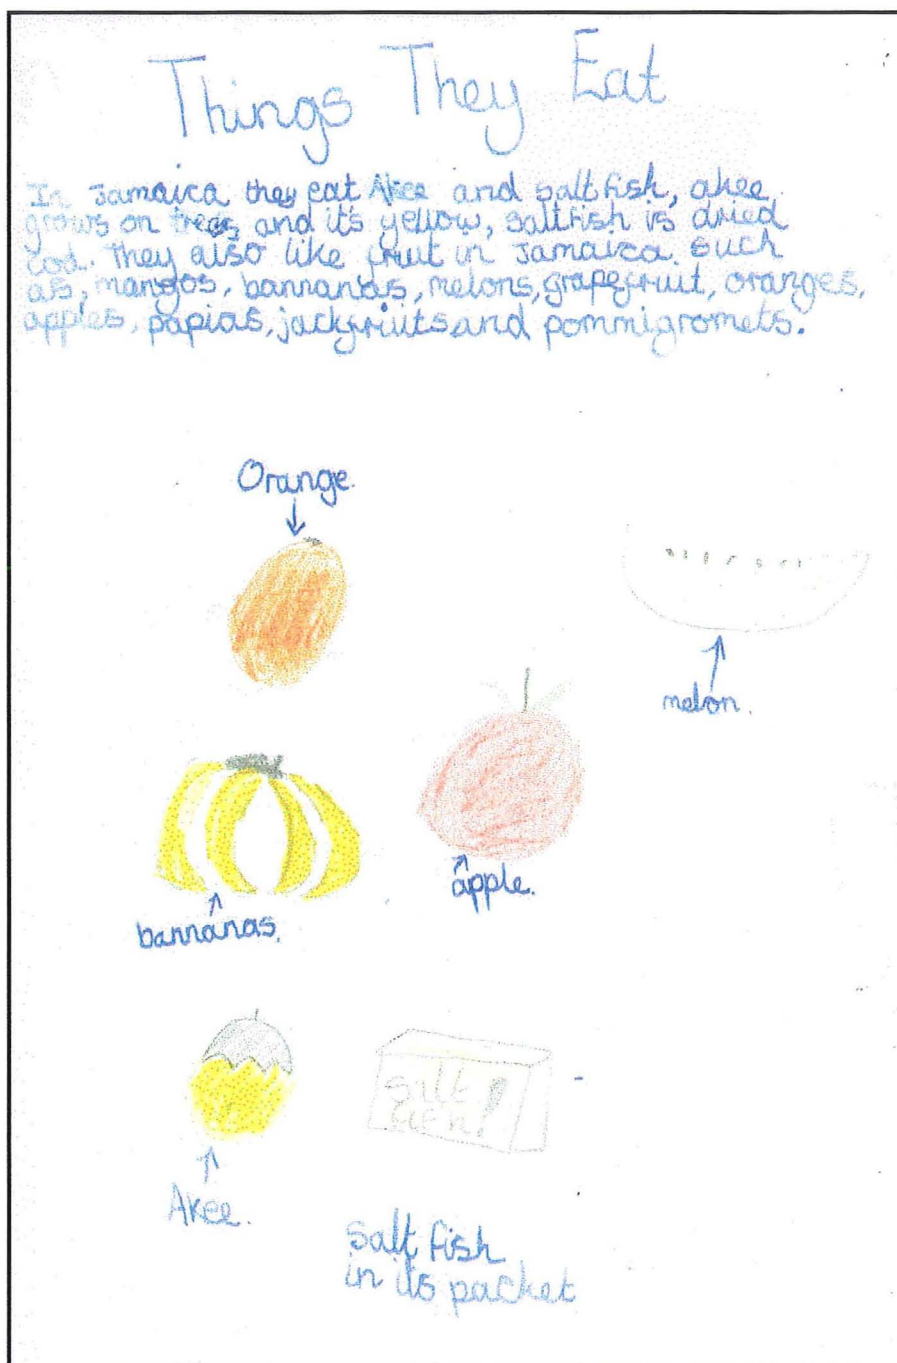 Things They Eat
In Jamaica they eat Akee and saltfish, akee
grows on trees and it's yellow, saltfish is dried
cod. They also like fruit in Jamaica. such
as, mangos, bannanas, melons, grapefruit, oranges,
apples, papias, jackfriuts and pommigromets.
Orange.
melon.
apple.
bannanas.
salt
fish!
Akee.
salt fish
in its packet